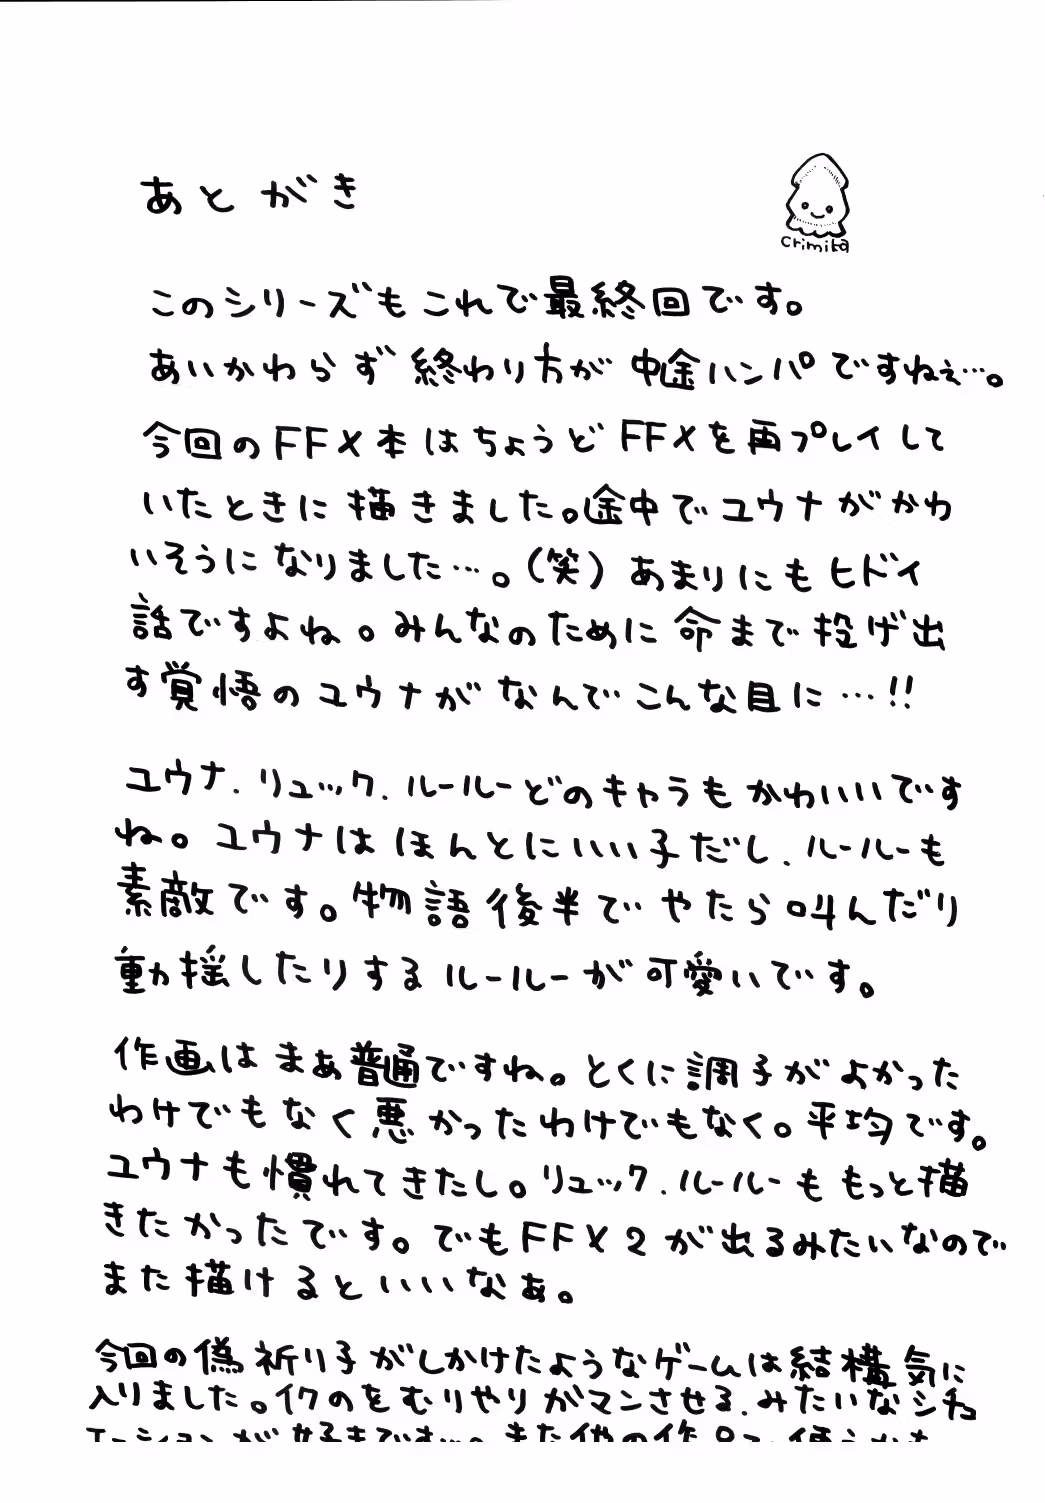 あとがき
Crimita
このシリーズもこれで最終回です。
あいかわらず終わり方が中途ハンパですねぇ…。
今回のFFX本はちょうどFFXを再プレイして
いたときに描きました。途中でユウナがかわ
いそうになりました…。(笑)あまりにもヒドイ
話ですよね。みんなのために命まで投げ出
す覚悟のユウナがなんでこんな目に…!!
ユウナ、リュック、ルールーどのキャラもかわいいです
ね。ユウナはほんとにいい子だし、ルールーも
素敵です。物語後半でやたら叫んだり
動揺したりするルールーが可愛いです。
作画はまぁ普通ですね。とくに調子がよかった
わけでもなく悪かったわけでもなく。平均です。
ユウナも慣れてきたし。リュック、ルールーももっと描
きたかったです。でもFFX2が出るみたいなので
また描けるといいなぁ。
今回の偽祈り子がしかけたようなゲームは結構気に
入りました。イクのをむりやりガマンさせる、みたいなシチュ
エーションが好きです…。また他の作品で使うかも